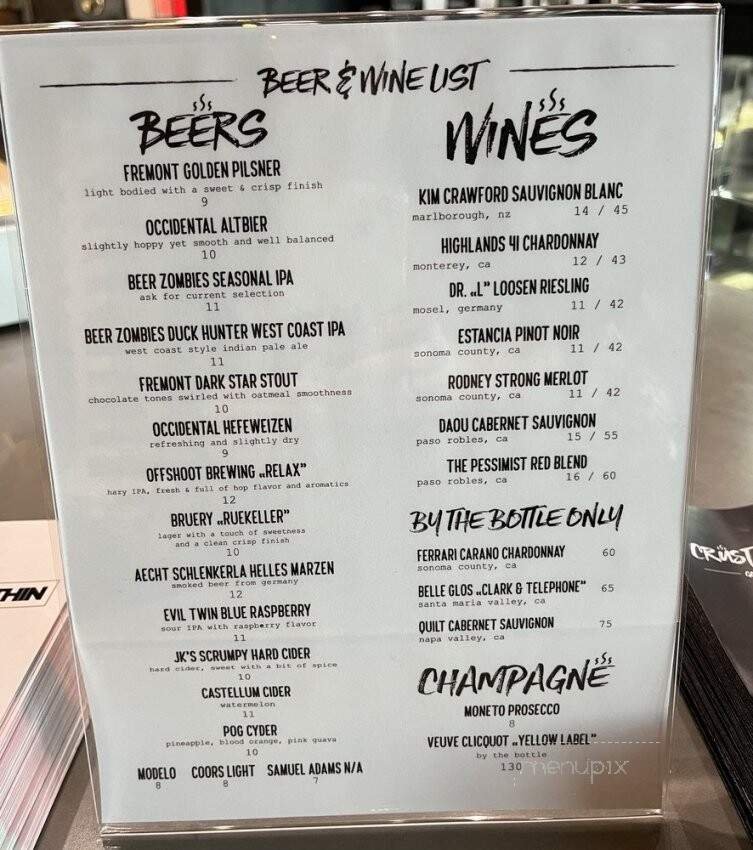 BEER & WINE LIST
BEERS
FREMONT GOLDEN PILSNER
light bodied with a sweet & crisp finish
9
OCCIDENTAL ALTBIER
slightly hoppy yet smooth and well balanced
10
BEER ZOMBIES SEASONAL IPA
ask for current selection
11
BEER ZOMBIES DUCK HUNTER WEST COAST IPA
west coast style indian pale ale
11
FREMONT DARK STAR STOUT
chocolate tones swirled with oatmeal smoothness
10
OCCIDENTAL HEFEWEIZEN
refreshing and slightly dry
9
OFFSHOOT BREWING „RELAX”
hazy IPA, fresh & full of hop flavor and aromatics
12
BRUERY „RUEKELLER”
lager with a touch of sweetness
and a clean crisp finish
10
AECHT SCHLENKERLA HELLES MARZEN
smoked beer from germany
12
EVIL TWIN BLUE RASPBERRY
sour IPA with raspberry flavor
11
JK'S SCRUMPY HARD CIDER
hard cider, sweet with a bit of spice
10
CASTELLUM CIDER
watermelon
11
POG CYDER
pineapple, blood orange, pink guava
10
MODELO COORS LIGHT SAMUEL ADAMS N/A
8 8 7
WINES
KIM CRAWFORD SAUVIGNON BLANC
marlborough, nz 14 / 45
HIGHLANDS 41 CHARDONNAY
monterey, ca 12 / 43
DR. „L” LOOSEN RIESLING
mosel, germany 11 / 42
ESTANCIA PINOT NOIR
sonoma county, ca 11 / 42
RODNEY STRONG MERLOT
sonoma county, ca 11 / 42
DAOU CABERNET SAUVIGNON
paso robles, ca 15 / 55
THE PESSIMIST RED BLEND
paso robles, ca 16 / 60
BY THE BOTTLE ONLY
FERRARI CARANO CHARDONNAY 60
sonoma county, ca
BELLE GLOS „CLARK & TELEPHONE” 65
santa maria valley, ca
QUILT CABERNET SAUVIGNON 75
napa valley, ca
CHAMPAGNE
MONETO PROSECCO
8
VEUVE CLICQUOT „YELLOW LABEL”
by the bottle
130
menupix
THIN
CRUST